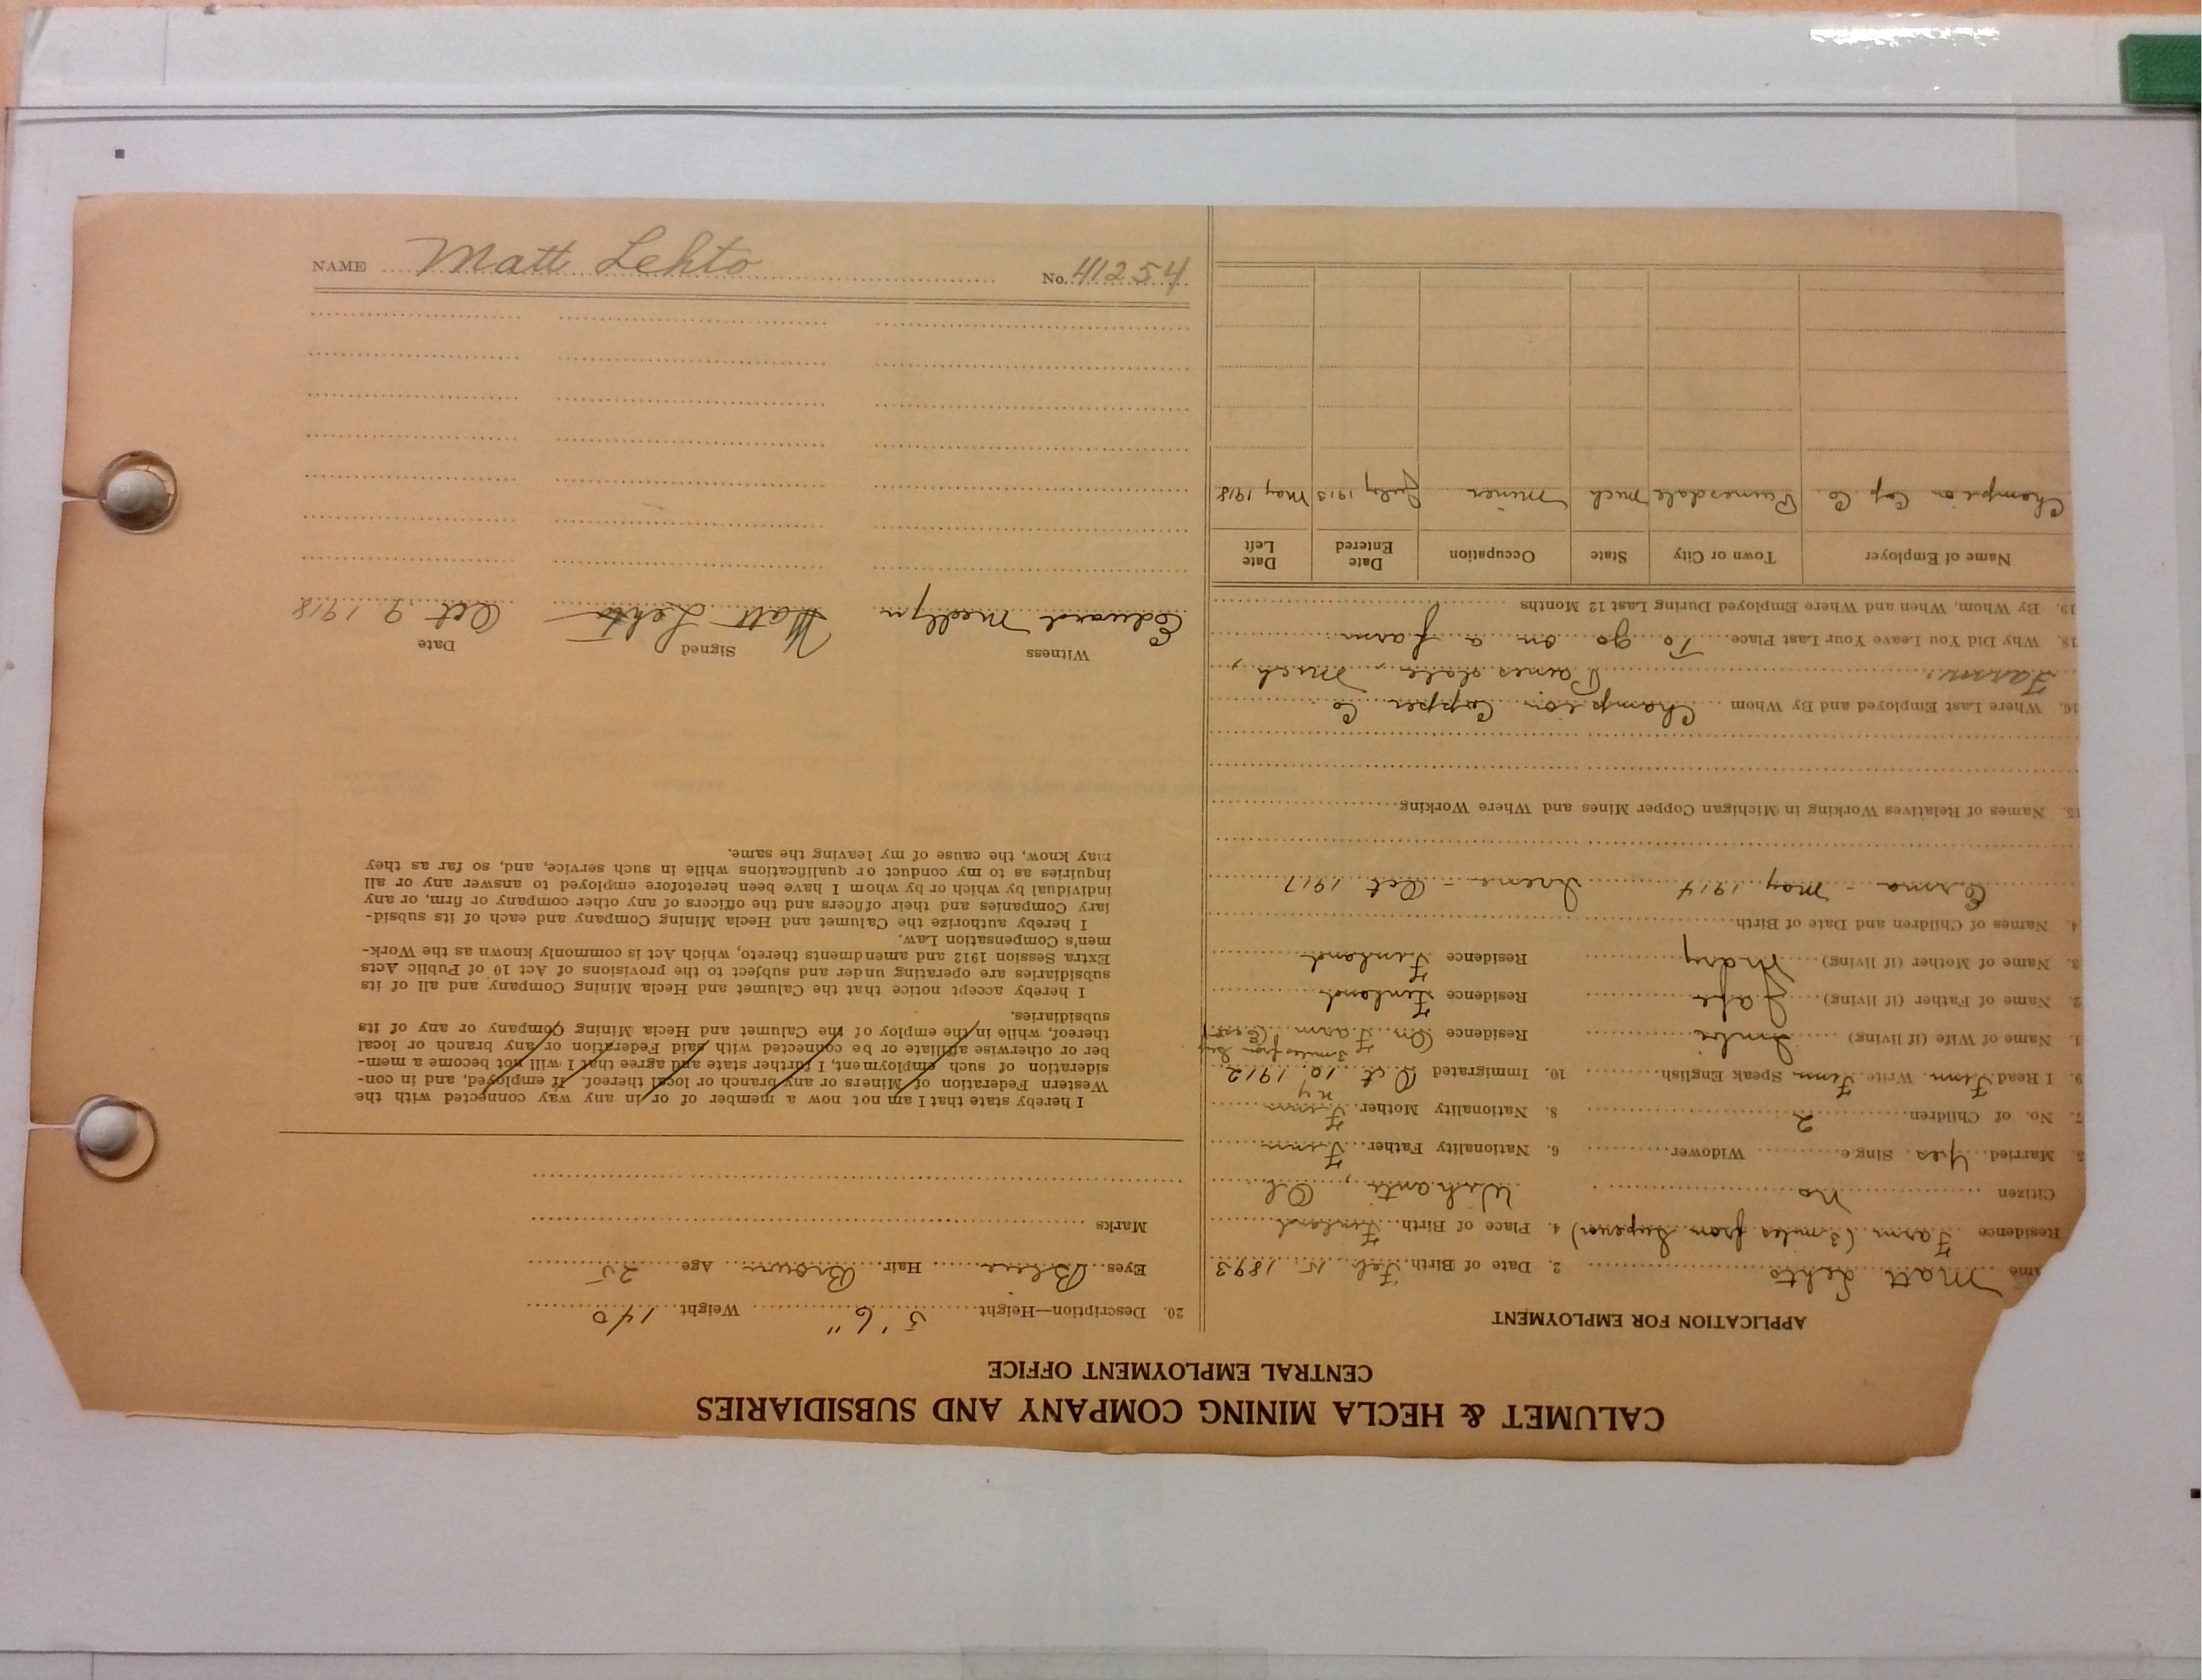 NAME Matt Lehto No. 41254
CALUMET & HECLA MINING COMPANY AND SUBSIDIARIES
CENTRAL EMPLOYMENT OFFICE
APPLICATION FOR EMPLOYMENT
ame Matt Lehto 2. Date of Birth Feb 15 1893
Residence Farm (3 miles from Superior) 4. Place of Birth Finland
Citizen no
5. Married Yes Single Widower 6. Nationality Father Finn
7. No. of Children 2 8. Nationality Mother Finn
9. I Read Finn Write Finn Speak English 10. Immigrated Oct 10 1912 NY
1. Name of Wife (if living) Residence On Farm
2. Name of Father (if living) Residence Finland
3. Name of Mother (if living) Mary Residence Finland
4. Names of Children and Date of Birth
Erma - May 1914 Irene - Oct 1917
15. Names of Relatives Working in Michigan Copper Mines and Where Working
16. Where Last Employed and By Whom Champion Copper Co
Farm. Painesdale, Mich,
18. Why Did You Leave Your Last Place To go on a farm
19. By Whom, When and Where Employed During Last 12 Months
Name of Employer Town or City State Occupation Date Entered Date Left
Champion Cop Co. Painesdale Mich Miner July 1913 May 1918
20. Description—Height 5'6" Weight 140
Eyes Blue Hair Brown Age 25
Marks
I hereby state that I am not now a member of or in any way connected with the
Western Federation of Miners or any branch or local thereof. If employed, and in con-
sideration of such employment, I further state and agree that I will not become a mem-
ber or otherwise affiliate or be connected with said Federation or any branch or local
thereof, while in the employ of the Calumet and Hecla Mining Company or any of its
subsidiaries.
I hereby accept notice that the Calumet and Hecla Mining Company and all of its
subsidiaries are operating under and subject to the provisions of Act 10 of Public Acts
Extra Session 1912 and amendments thereto, which Act is commonly known as the Work-
men's Compensation Law.
I hereby authorize the Calumet and Hecla Mining Company and each of its subsid-
iary Companies and their officers and the officers of any other company or firm, or any
individual by which or by whom I have been heretofore employed to answer any or all
inquiries as to my conduct or qualifications while in such service, and, so far as they
may know, the cause of my leaving the same.
Witness Signed Date
Edward Medlyn Matt Lehto Oct 9 1918